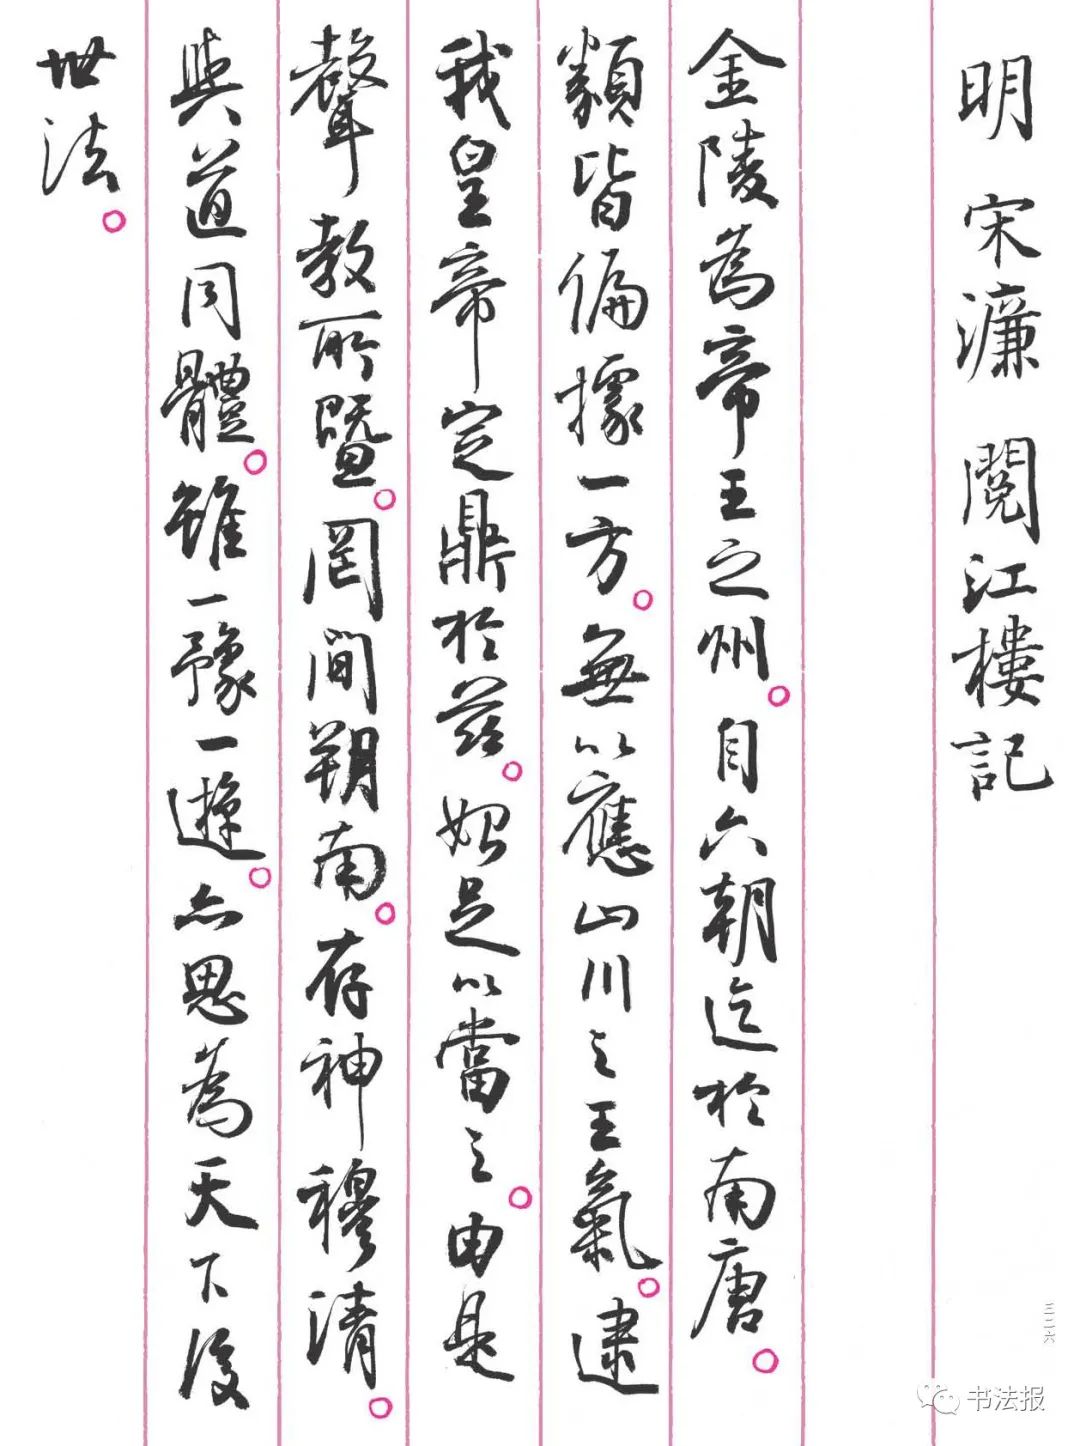 明 宋濂 閱江樓記
金陵為帝王之州。自六朝迄於南唐。
類皆偏據一方。無以應山川之王氣。逮
我皇帝定鼎於茲。始足以當之。由是
聲教所暨。罔間朔南。存神穆清。
與道同體。雖一豫一遊。亦思為天下後
世法。
三二六
书法报